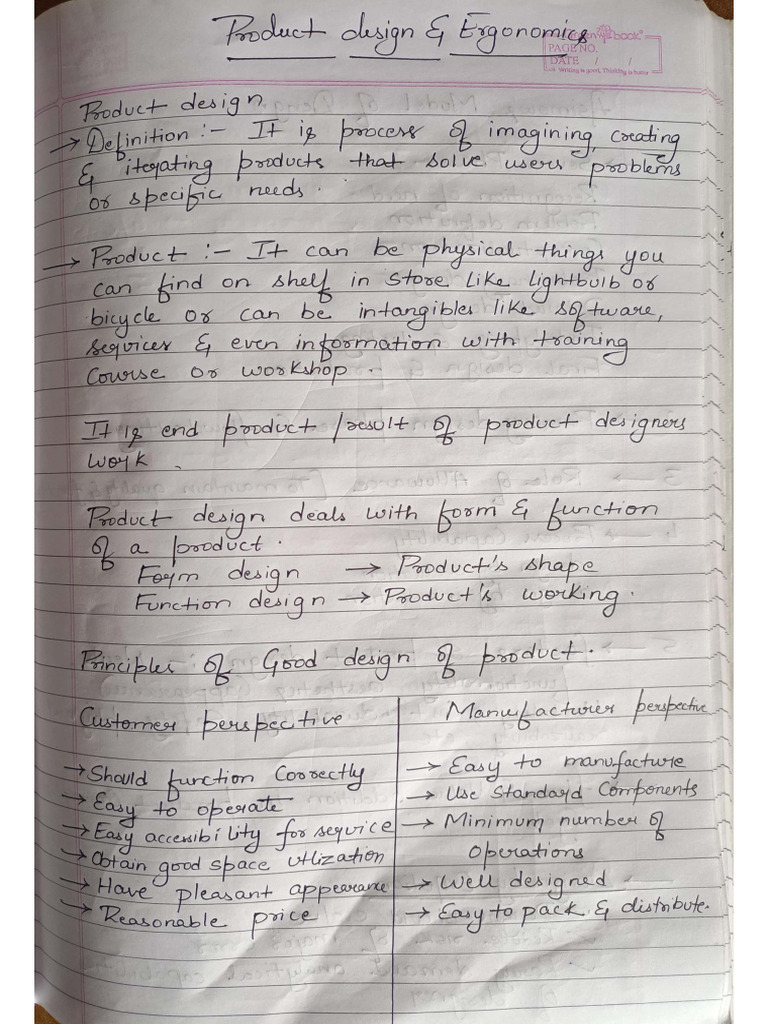 Product design & Ergonomics
PAGE NO.
DATE / /
Writing is good, Thinking is better
Product design
→ Definition :- It is process of imagining, creating
& iterating products that solve users problems
or specific needs.
→ Product :- It can be physical things you
can find on shelf in store like lightbulb or
bicycle or can be intangibles like software,
services & even information with training
course or workshop.
It is end product /result of product designers
work.
Product design deals with form & function
of a product.
Form design → Product's shape
Function design → Product's working.
Principles of Good design of product.
Customer perspective
→ Should function Correctly
→ Easy to operate
→ Easy accessibility for service
→ Obtain good space utlization
→ Have pleasant appearance
→ Reasonable price
Manufacturer perspective
→ Easy to manufacture
→ Use Standard Components
→ Minimum number of
operations
→ Well designed
→ Easy to pack & distribute.